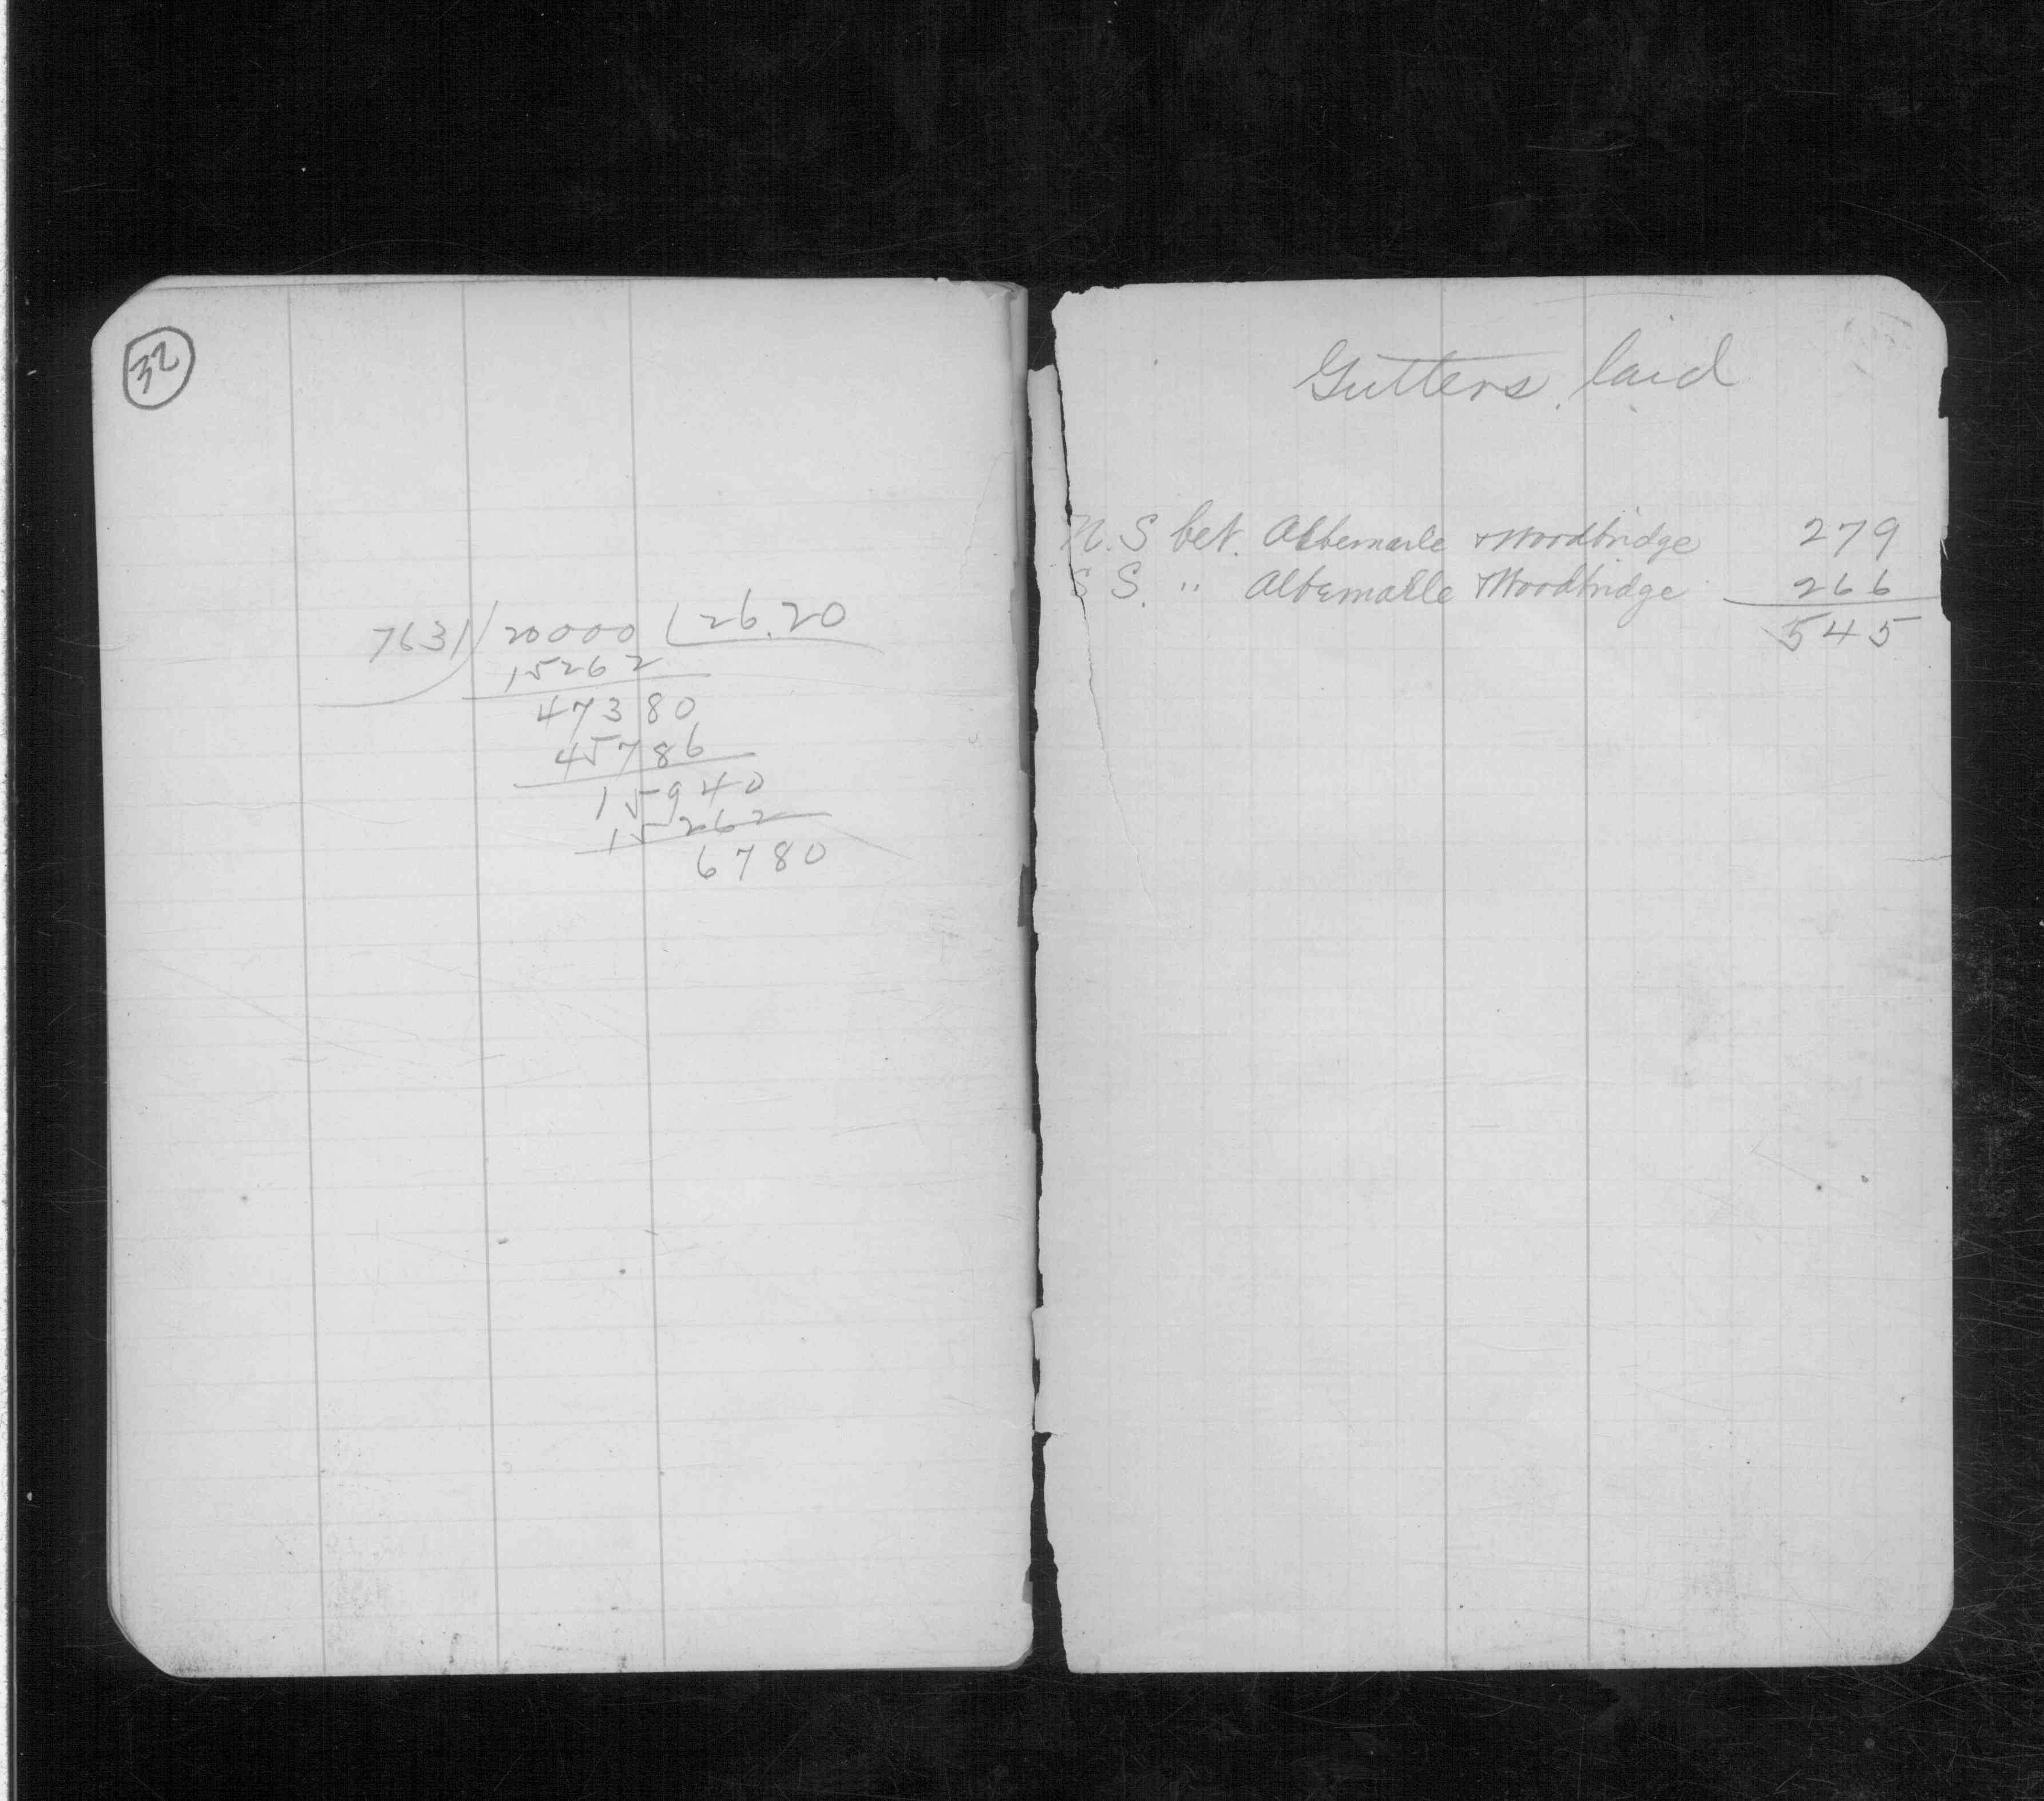 32
7631 ) 20000 ( 26.20
15262
47380
45786
15940
15262
6780
Gutters laid
N. S bet. Albemarle & Woodbridge 279
S S. " Albemarle & Woodbridge 266
545